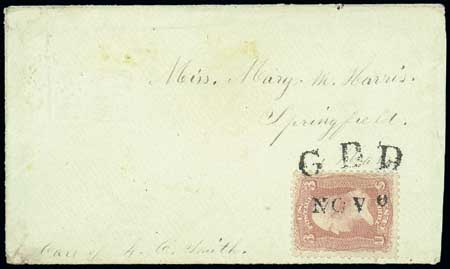 Miss. Mary. M. Harris.
Springfield.
G. B. D
NOV 9
3 3
Care of
Smith.